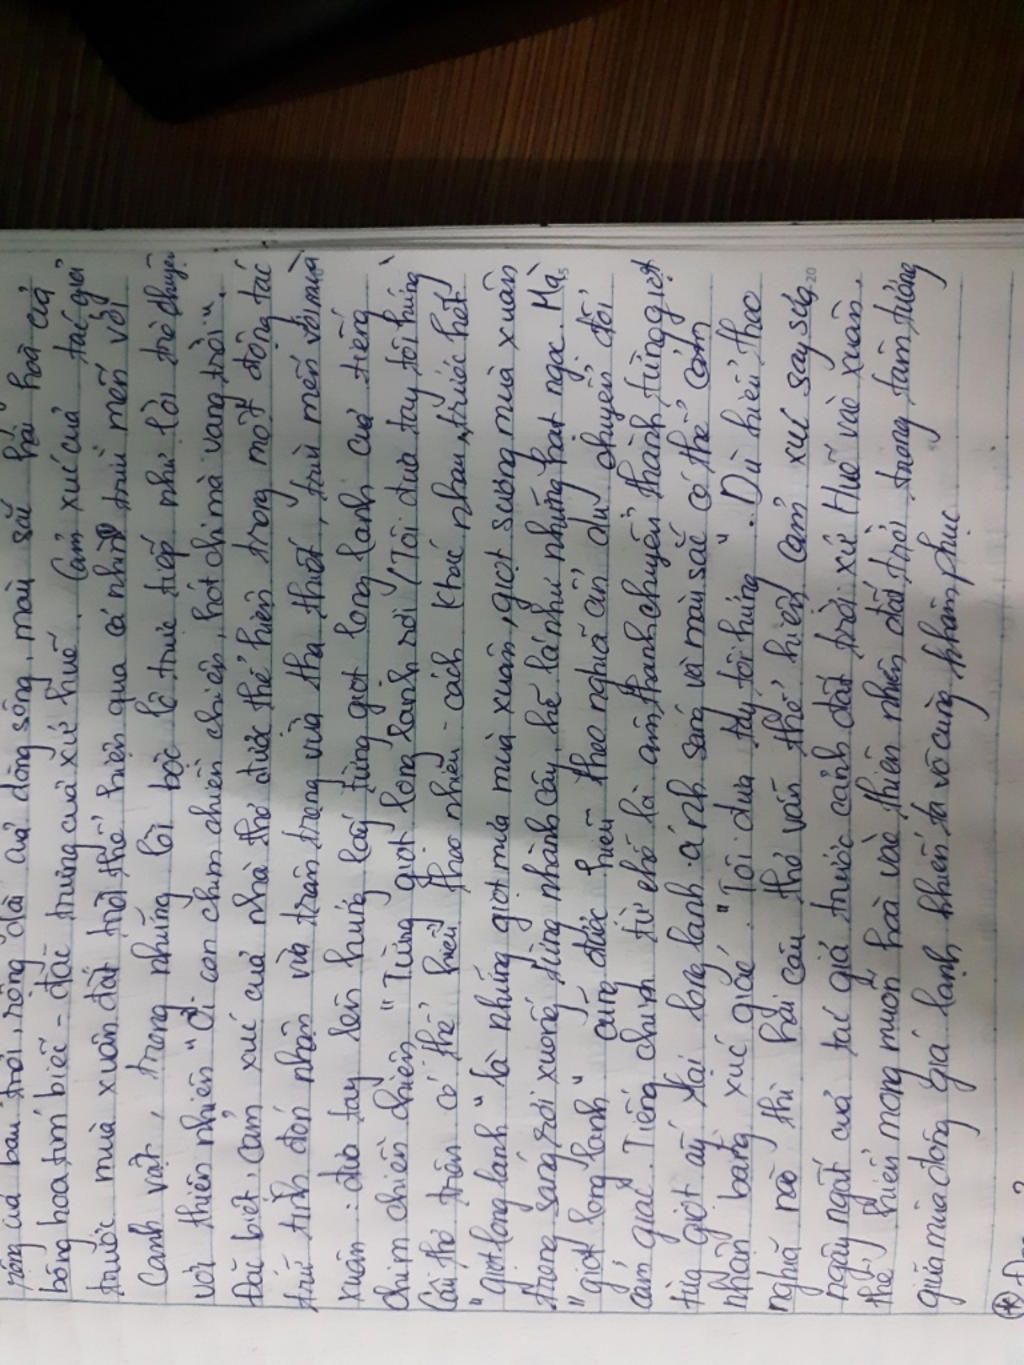 rộng của bầu trời, rộng dài của dòng sông, màu sắc hài hoà của
bông hoa tím biếc - đặc trưng của xứ Huế. Cảm xúc của tác giả
trước mùa xuân đất trời thể hiện qua cá nhìn trìu mến với
cảnh vật, trong những lời bộc lộ trực tiếp như lời trò chuyện
với thiên nhiên "Ơi con chim chiền chiện, hót chi mà vang trời".
Đặc biệt, cảm xúc của nhà thơ được thể hiện trong một động tác
trữ tình đón nhận vừa trân trọng vừa tha thiết, trìu mến với mùa
xuân: đưa tay lên hứng lấy từng giọt long lanh của tiếng
chim chiền chiện "Từng giọt long lanh rơi / Tôi đưa tay tôi hứng"
Câu thơ trên có thể hiểu theo nhiều cách khác nhau, trước hết
"giọt long lanh" là những giọt mưa mùa xuân, giọt sương mùa xuân
trong sáng rơi xuống từng nhành cây, kẽ lá như những hạt ngọc. Mà
"giọt long lanh" cũng được hiểu theo nghĩa ẩn dụ chuyển đổi
cảm giác. Tiếng chim từ chỗ là âm thanh chuyển thành từng giọt
từg giọt ấy lại long lanh ánh sáng và màu sắc có thể cảm
nhận bằng xúc giác. "Tôi đưa tay tôi hứng". Dù hiểu theo
nghĩa nào thì hai câu thơ vẫn thể hiện cảm xúc say sưa,
ngây ngất của tác giả trước cảnh đất trời xứ Huế vào xuân,
thể hiện mong muốn hoà vào thiên nhiên đất trời trong tâm tưởng
giữa mùa đông giá lạnh khiến ta vô cùng khâm phục